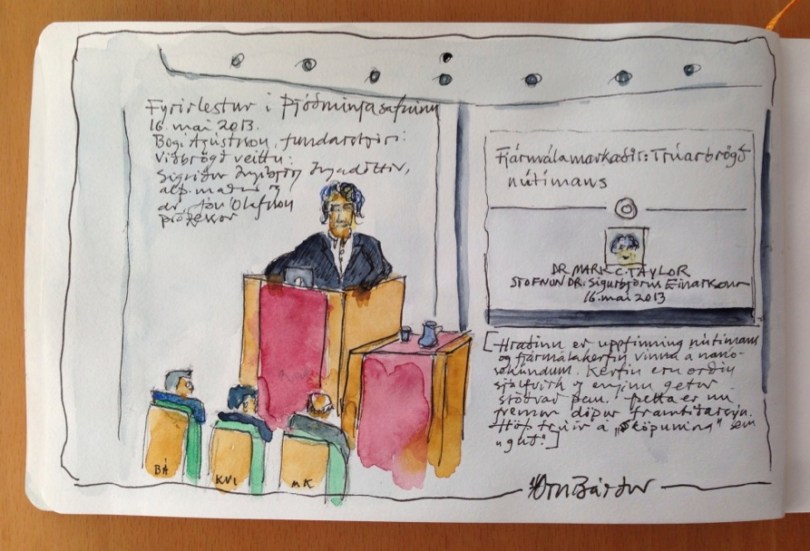 Fyrirlestur í Þjóðminjasafninu
16. maí 2013.
Bogi Ágústsson, fundarstjóri:
Viðbrögð veittu:
Sigríður Ingibjörg Ingadóttir,
alþ.maður og
dr. Jón Ólafsson
prófessor
Fjármálamarkaðir: Trúarbrögð
nútímans
DR MARK C. TAYLOR
STOFNUN DR. Sigurbjörns Einarssonar
16. maí 2013
[Hraðinn er uppfinning nútímans
og fjármálakerfin vinna á nanó-
sekúndum. Kerfin eru orðin
sjálfvirk og enginn getur
stöðvað þau. Þetta er nú
fremur döpur framtíðarsýn.
trúir á „sköpunina" sem
„guð".]
BÁ
KVI
MK
Örn Bárður